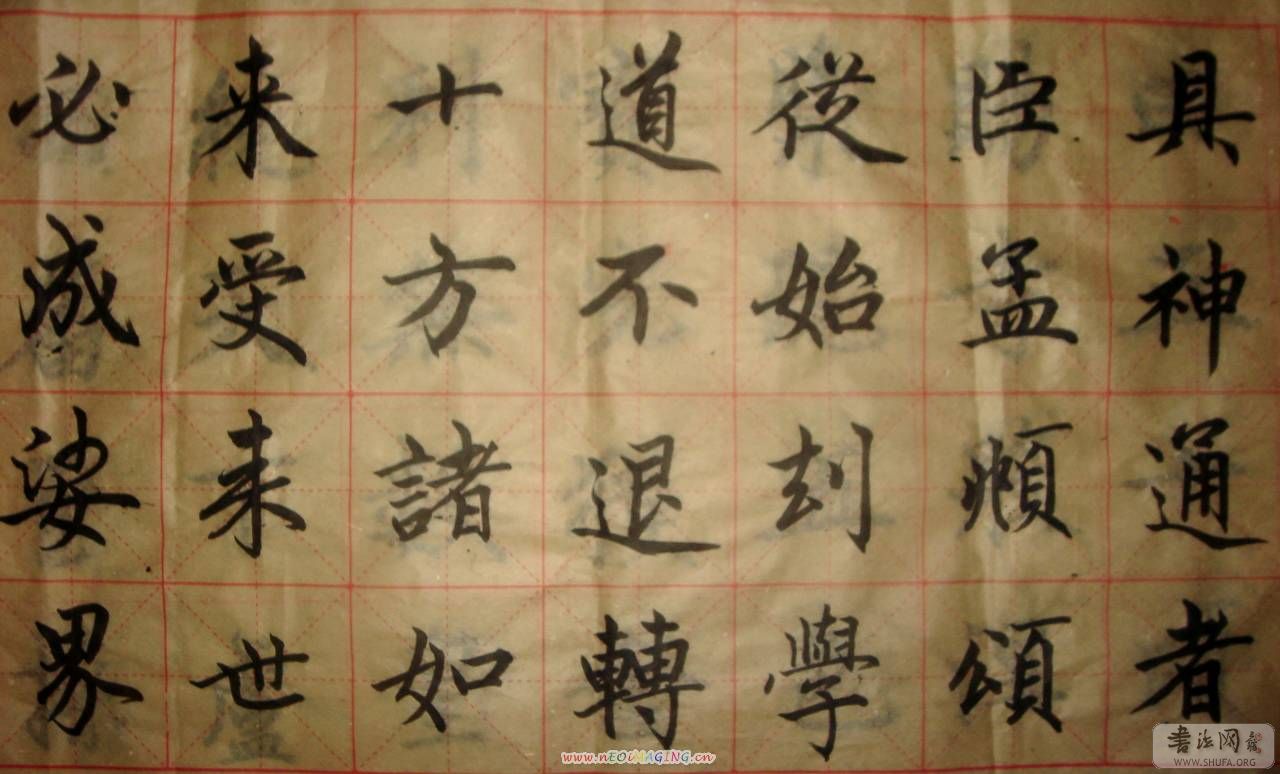 具神通者
臣孟頫頌
從始劫學
道不退轉
十方諸如
来受来世
必成娑界
www.nEOiMAGING.cn
书法网
WWW.SHUFA.ORG